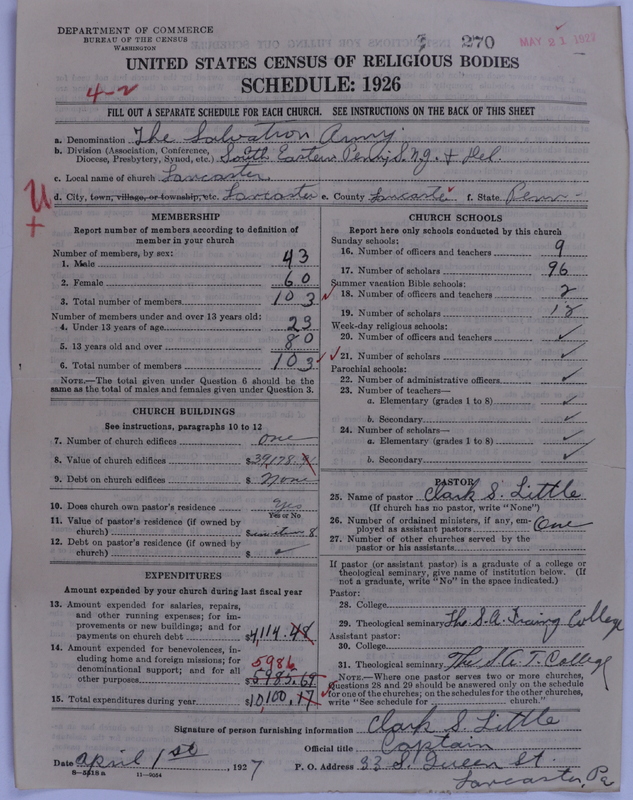 DEPARTMENT OF COMMERCE
BUREAU OF THE CENSUS
WASHINGTON
270
MAY 21 1927
UNITED STATES CENSUS OF RELIGIOUS BODIES
SCHEDULE: 1926
4-2
FILL OUT A SEPARATE SCHEDULE FOR EACH CHURCH. SEE INSTRUCTIONS ON THE BACK OF THIS SHEET
a. Denomination The Salvation Army
b. Division (Association, Conference, Diocese, Presbytery, Synod, etc.) South Eastern Penn, S. N.J. & Del.
c. Local name of church Lancaster.
d. City, town, village, or township, etc. Lancaster e. County Lancaster f. State Penn-
U
+
MEMBERSHIP
Report number of members according to definition of
member in your church
Number of members, by sex:
1. Male 43
2. Female 60
3. Total number of members 103
Number of members under and over 13 years old:
4. Under 13 years of age 23
5. 13 years old and over 80
6. Total number of members 103
NOTE.—The total given under Question 6 should be
same as the total of males and females given under Question 3.
CHURCH BUILDINGS
See instructions, paragraphs 10 to 12
7. Number of church edifices one
8. Value of church edifices $39,178.
9. Debt on church edifices $ None
10. Does church own pastor's residence yes
Yes or No
11. Value of pastor's residence (if owned by
church) $ 8
12. Debt on pastor's residence (if owned by
church) $
EXPENDITURES
Amount expended by your church during last fiscal year
13. Amount expended for salaries, repairs,
and other running expenses; for im-
provements or new buildings; and for
payments on church debt $4,114.48
14. Amount expended for benevolences, in-
cluding home and foreign missions; for
denominational support; and for all
other purposes 5986 $5985.69
15. Total expenditures during year $10,100.17
CHURCH SCHOOLS
Report here only schools conducted by this church
Sunday schools:
16. Number of officers and teachers 9
17. Number of scholars 96
Summer vacation Bible schools:
18. Number of officers and teachers 2
19. Number of scholars 12
Week-day religious schools:
20. Number of officers and teachers ✓
21. Number of scholars ✓
Parochial schools:
22. Number of administrative officers ✓
23. Number of teachers—
a. Elementary (grades 1 to 8) ✓
b. Secondary ✓
24. Number of scholars—
a. Elementary (grades 1 to 8) ✓
b. Secondary ✓
PASTOR
25. Name of pastor Clark S. Little
(If church has no pastor, write "None")
26. Number of ordained ministers, if any, em-
ployed as assistant pastors One
27. Number of other churches served by the
pastor or his assistants
If pastor (or assistant pastor) is a graduate of a college or
theological seminary, give name of institution below. (If
not a graduate, write "No" in the space indicated.)
Pastor:
28. College
29. Theological seminary The S.A. Traing College
Assistant pastor:
30. College
31. Theological seminary The S.A.T. College
NOTE.—Where one pastor serves two or more churches,
Questions 28 and 29 should be answered only on the schedule
for one of the churches; on the schedules for the other churches,
write "See schedule for church."
Signature of person furnishing information Clark S. Little
Official title Captain
Date April 1st, 1927 P. O. Address 33 S. Queen St.
Lancaster, Pa
11—9064